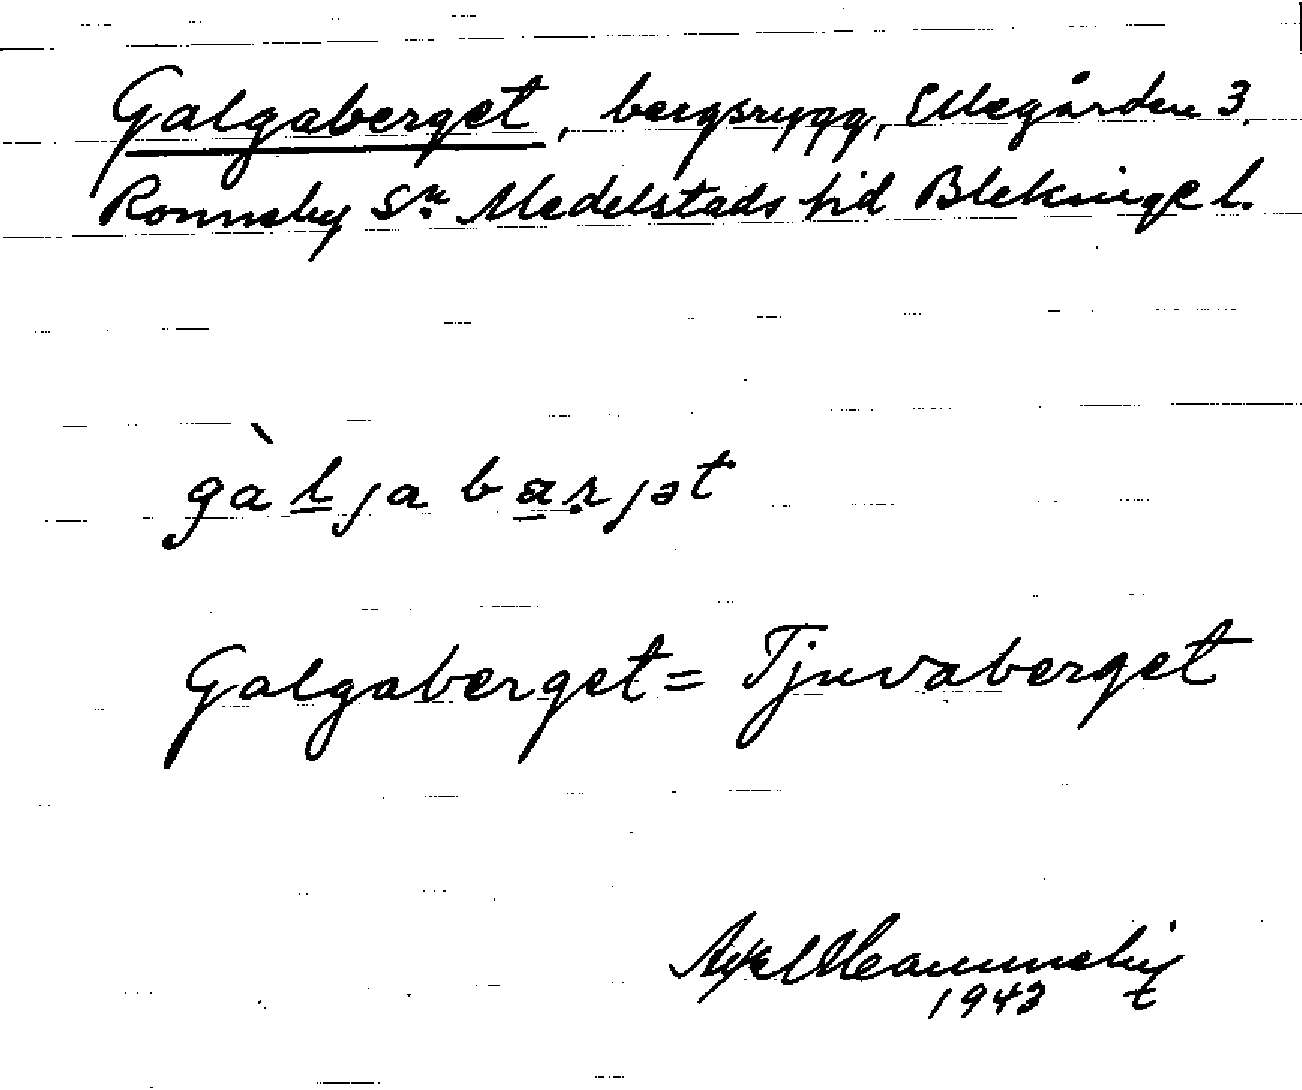 Galgaberget, bergsrygg, Ellegården 3.
Ronneby Sn. Medelstads hd Blekinge l.
gàlja bærjət
Galgaberget = Tjuvaberget
Axel
1943